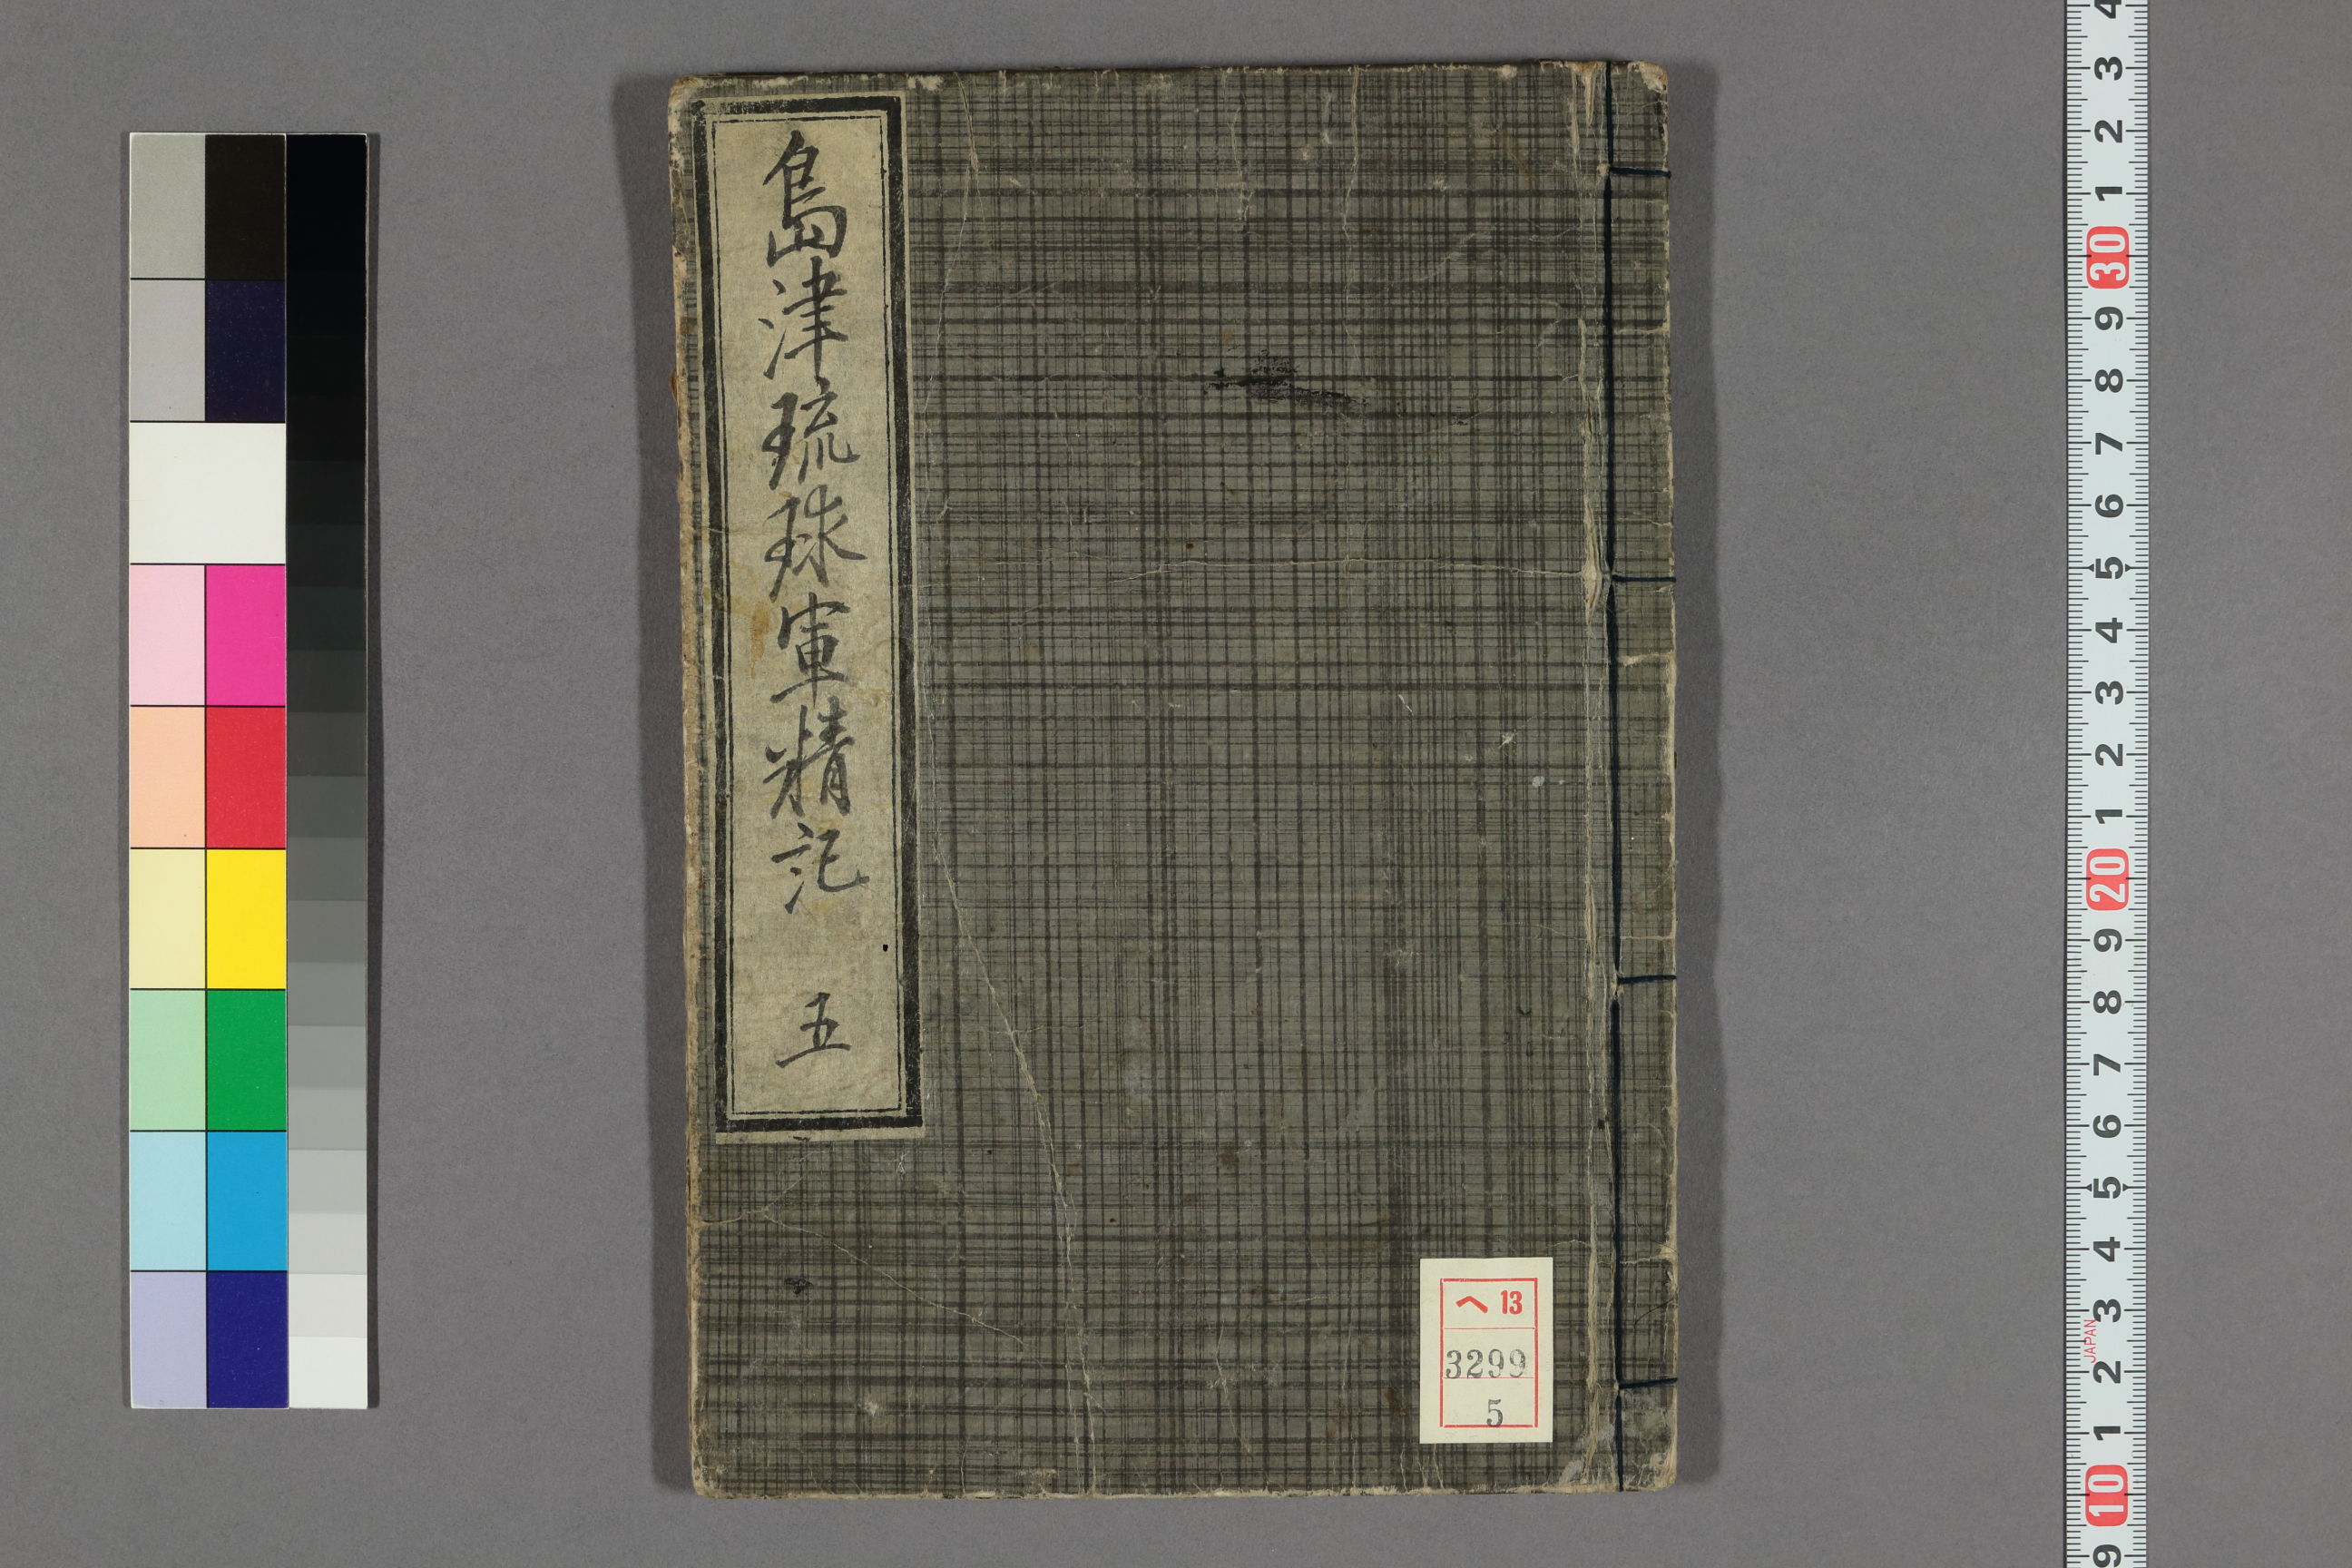 島津琉球軍精記 五
ヘ 13
3299
5
4
3
2
1
30
9
8
7
6
5
4
3
2
1
20
9
8
7
6
5
4
3
JAPAN
2
1
10
9